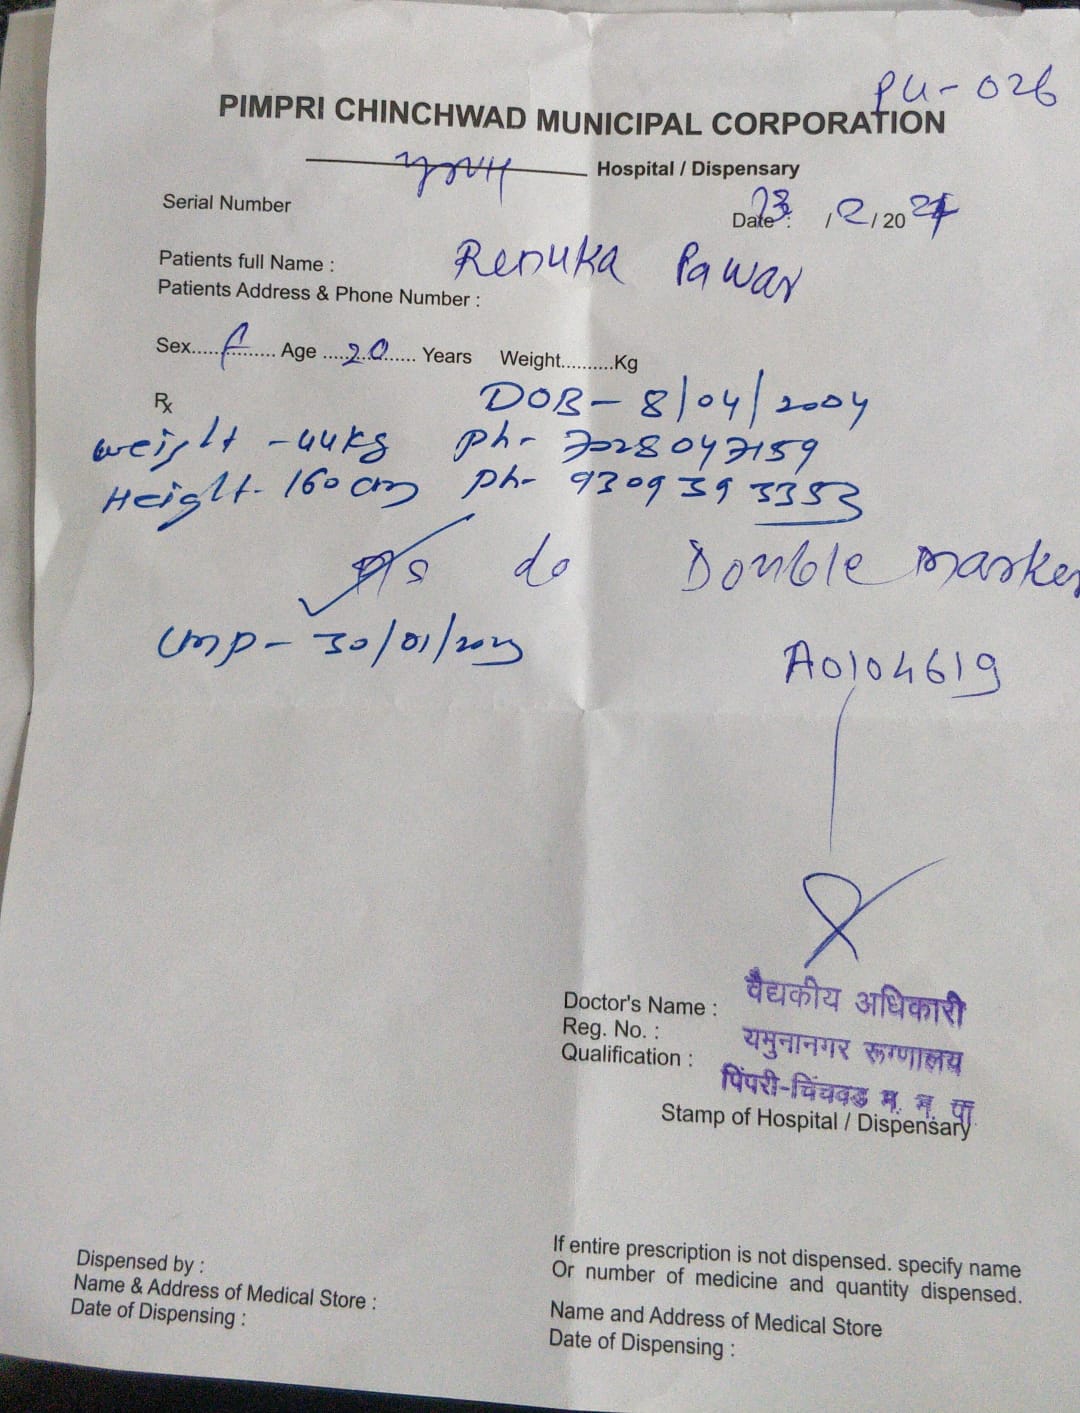 PU-026
PIMPRI CHINCHWAD MUNICIPAL CORPORATION
YNH Hospital / Dispensary
Serial Number
Date : 23 / 2 / 20 24
Patients full Name : Renuka Pawar
Patients Address & Phone Number :
Sex.....f......... Age .....20...... Years Weight..........Kg
Rx DOB - 8/04/2004
weight - 44kg ph- 7028047159
Height - 160 cm ph- 9309393353
do Double marker
LMP - 30/01/2023
A0104619
Doctor's Name : वैद्यकीय अधिकारी
Reg. No. : यमुनानगर रूग्णालय
Qualification : पिंपरी-चिंचवड म. न. पा.
Stamp of Hospital / Dispensary
Dispensed by :
Name & Address of Medical Store :
Date of Dispensing :
If entire prescription is not dispensed. specify name
Or number of medicine and quantity dispensed.
Name and Address of Medical Store
Date of Dispensing :